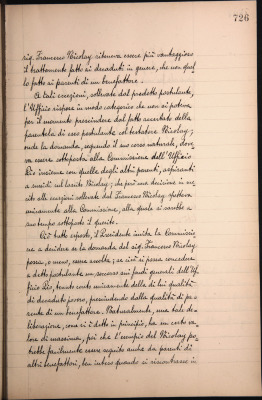 726
sig. Francesco Nicolay riteneva essere più vantaggioso
il trattamento fatto ai decaduti in genere, che non quel
lo fatto ai parenti di un benefattore.
A tali eccezioni, sollevate dal predetto postulante,
l'Uffizio rispose in modo categorico che non si poteva
per il momento prescindere dal fatto accertato della
parentela di esso postulante col testatore Nicolay;
onde la domanda, seguendo il suo corso naturale, dove
va essere sottoposta alla Commissione dell'Uffizio
Pio insieme con quelle degli altri parenti, aspiranti
a sussidi sul lascito Nicolay; che però una decisione in me
rito alle eccezioni sollevate dal Francesco Nicolay spettava
unicamente alla Commissione, alla quale si sarebbe a
suo tempo sottoposto il quesito.
Ciò tutto esposto, il Presidente invita la Commissio
ne a decidere se la domanda del sig. Francesco Nicolay
possa, o meno, essere accolta; se cioè si possa concedere
a detto postulante un soccorso sui fondi generali dell'Uf
fizio Pio, tenuto conto unicamente della di lui qualità
di decaduto povero, prescindendo dalla qualità di pa-
rente di un benefattore. Naturalmente, una tale de-
liberazione, come si è detto in principio, ha un certo va-
lore di massima, poi che l'esempio del Nicolay po-
trebbe facilmente essere seguito anche da parenti di
altri benefattori, ben inteso quando si riscontrasse in